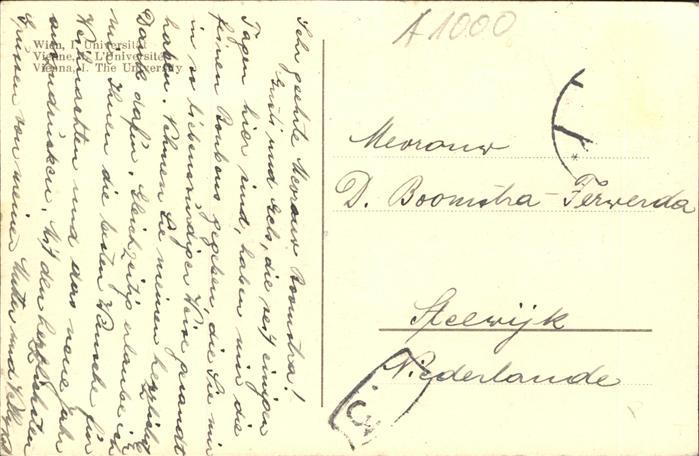 A 1000
Wien, I. Universität
Vienne, I. L'Université
Vienna, I. The University
Sehr geehrte Mevrouw Boomstra!
Gusti und Edi, die seit einigen
Tagen hier sind, haben mir die
feinen Bonbons gegeben, die Sie mir
in so liebenswürdiger Weise gesandt
haben. Nehmen Sie meinen herzlichsten
Dank dafür. Gleichzeitig erlaube ich
mir, Ihnen die besten Wünsche für
Weihnachten und das neue Jahr
auszudrücken. Mit den herzlichsten
Grüssen von meiner Mutter und
Mevrouw
D. Boomstra-Ferwerda
Steewijk
Niederlande